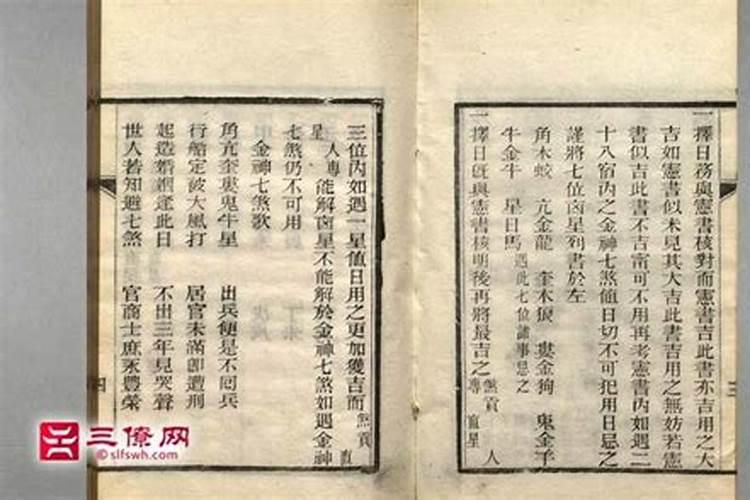 一擇日務與憲書核對而憲書吉此書亦吉用之大
吉如憲書似未見其大吉此書吉用之無妨若憲
書似吉此書不吉甯可不用再考憲書內如遇二
十八宿內之金神七煞値日切不可犯用日忌之
謹將七位凶星列書於左
角木蛟 亢金龍 奎木狼 婁金狗 鬼金羊
牛金牛 星日馬 遇此七位諸事忌之
一擇日旣與憲書核明後再將最吉之煞貢專直星人
三
三位內如遇一星値日用之更加獲吉而煞貢直
星人專能解凶星不能解於金神七煞如遇金神
七煞仍不可用
金神七煞歌
角亢奎婁鬼牛星 出兵便是不囘兵
行船定被大風打 居官未滿卽遭刑
起造婚姻逢此日 不出三年見哭聲
世人若知避七煞 官商士庶永豐榮
四
三僚网
©slfswh.com